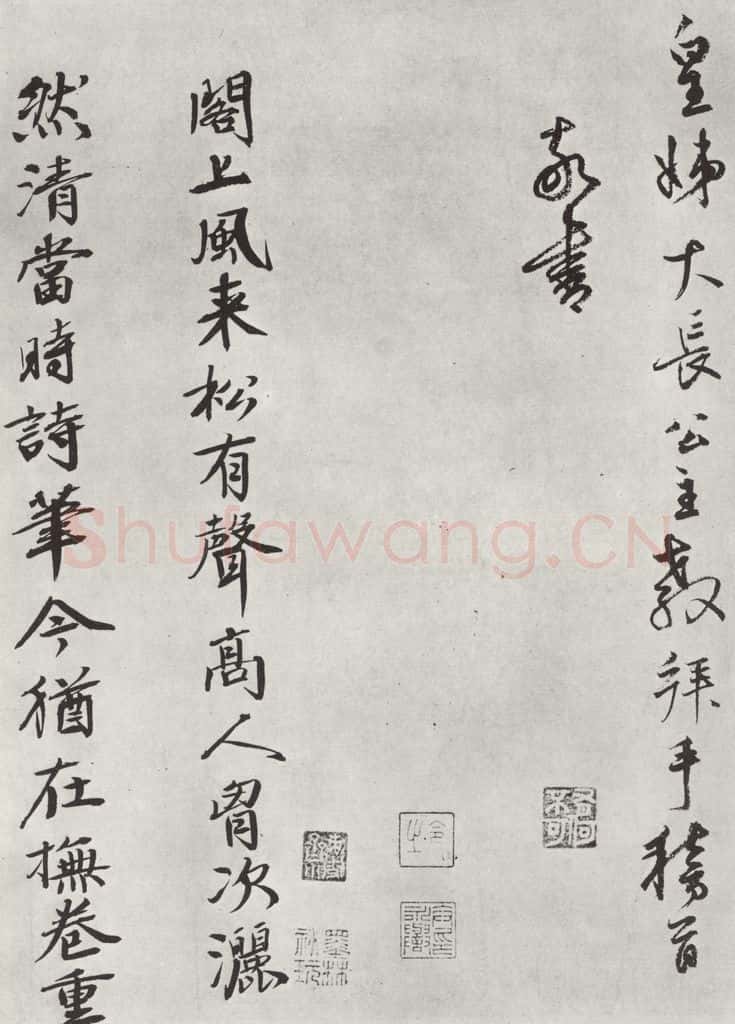 皇姊大長公主教拜手稽首
敬書
閣上風来松有聲高人胷次灑
然清當時詩筆今猶在撫卷重
Shufawang.CN